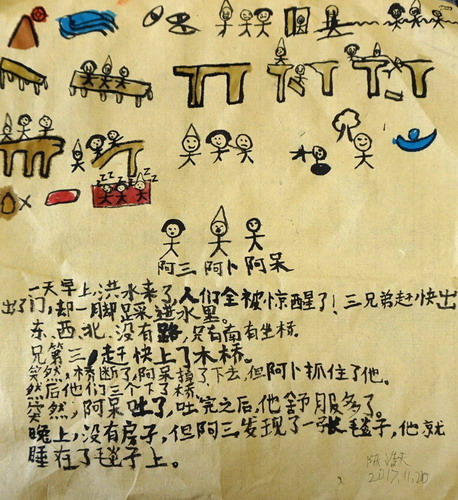 zzz zzz zzz
阿三 阿卜 阿呆
一天早上,洪水来了,人们全被惊醒了!三兄弟赶快出
出了门,却一脚踩进水里。
东、西、北、没有路,只有南有坐桥。
兄第三,赶快上了木桥。
突然,桥断了,阿呆掉了下去,但阿卜抓住了他。
然后他们三个下了桥。
突然,阿呆吐了,吐完之后,他舒服多了。
晚上,没有房子,但阿三发现了一张毯子,他就
睡在了毯子上。
2017.11.20